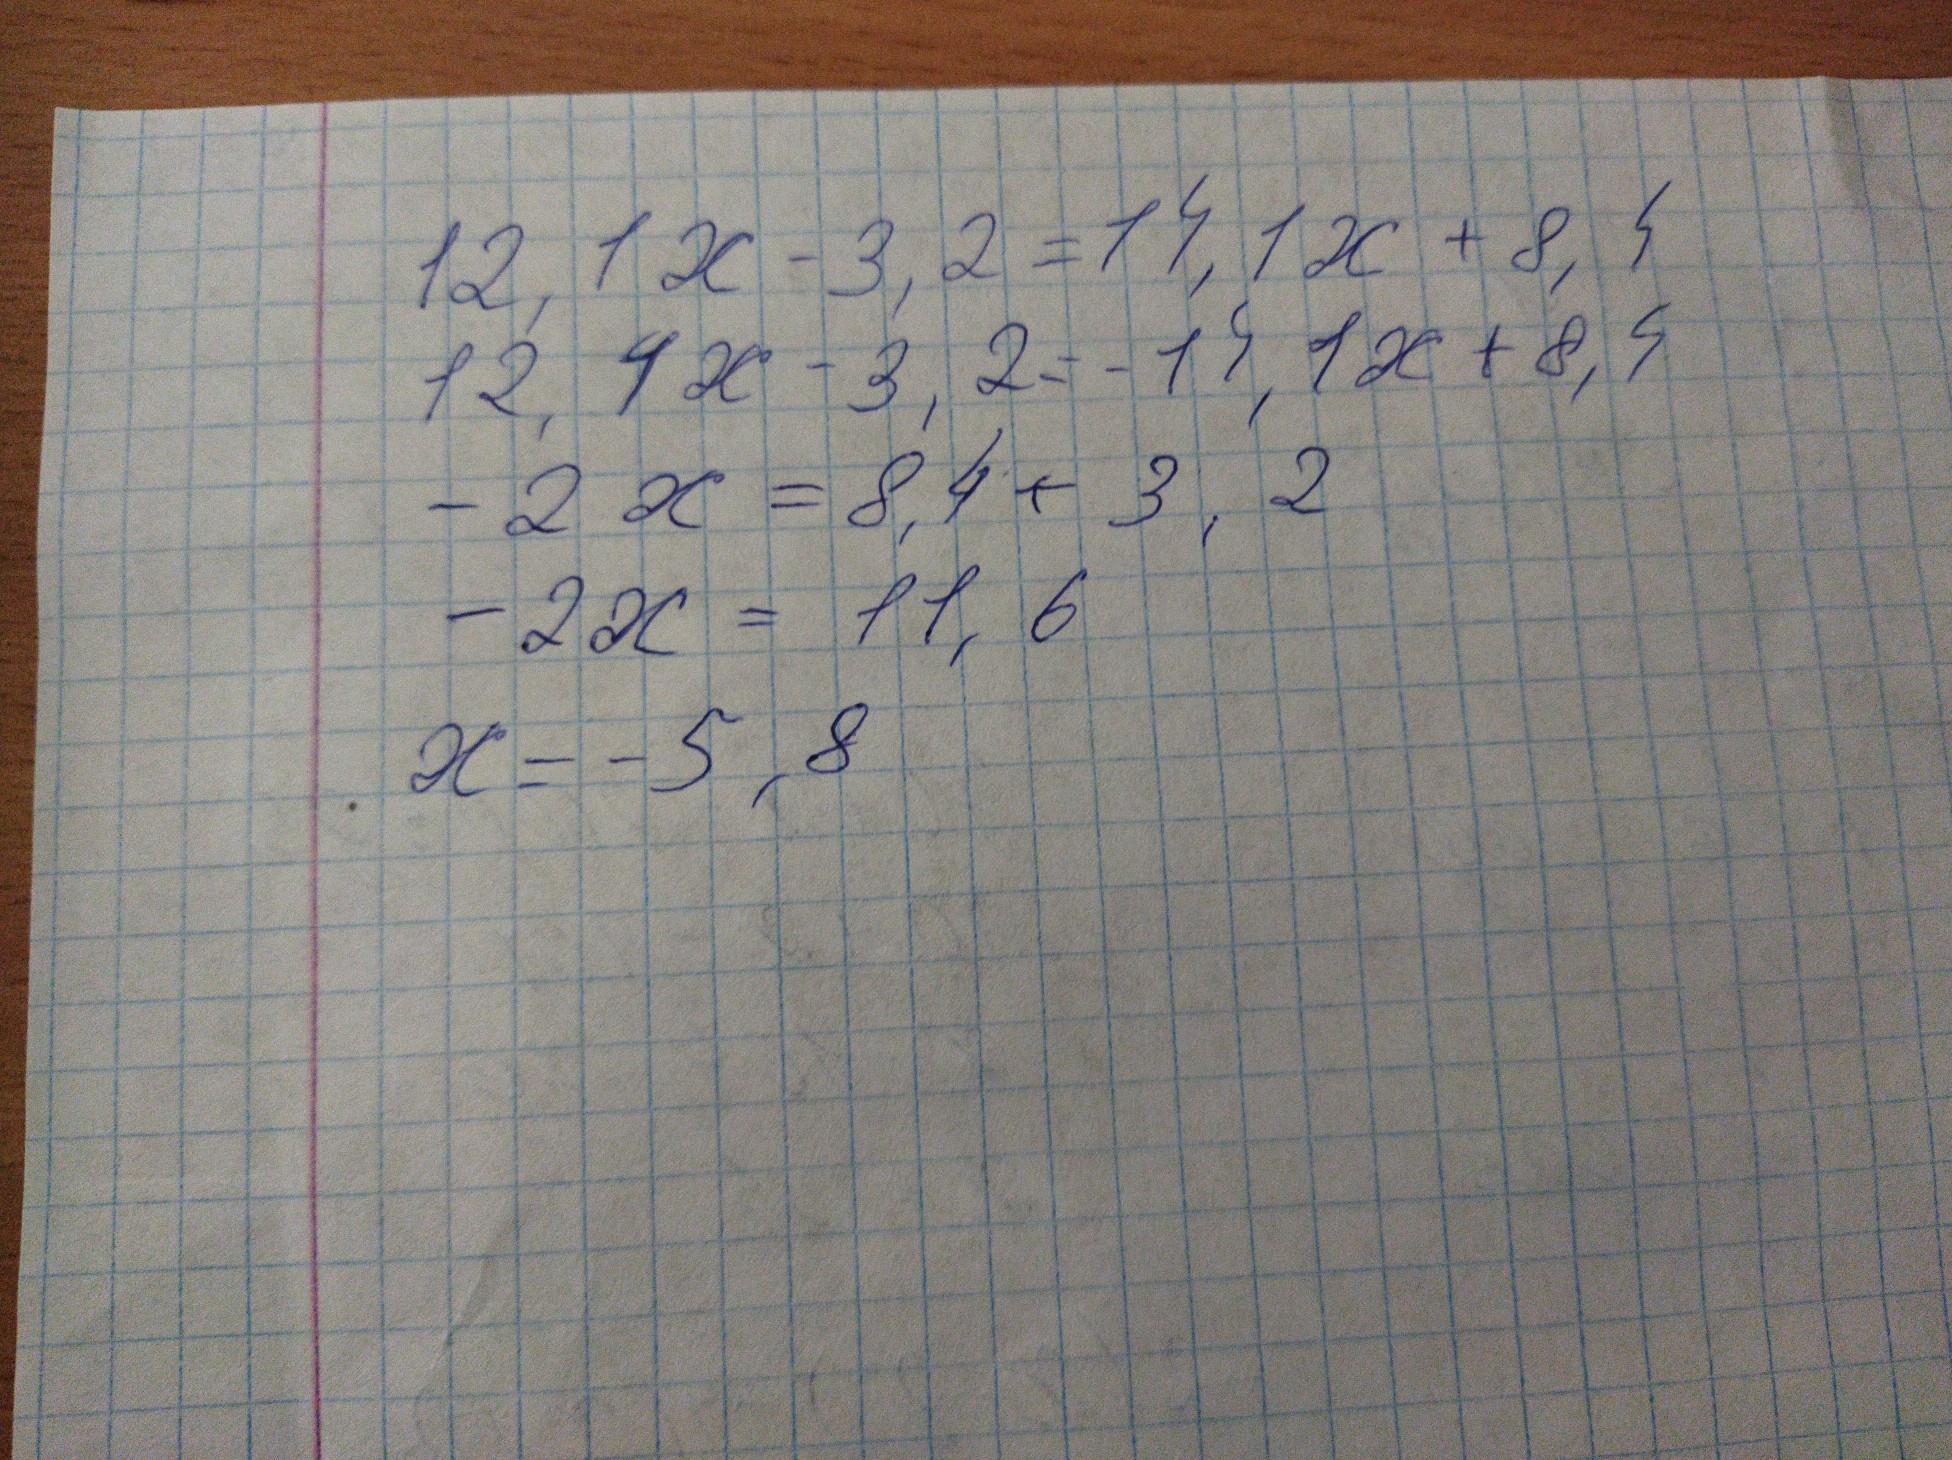 12,1x-3,2=14,1x+8,4
12,1x-3,2=-14,1x+8,4
-2x=8,4+3,2
-2x=11,6
x=-5,8